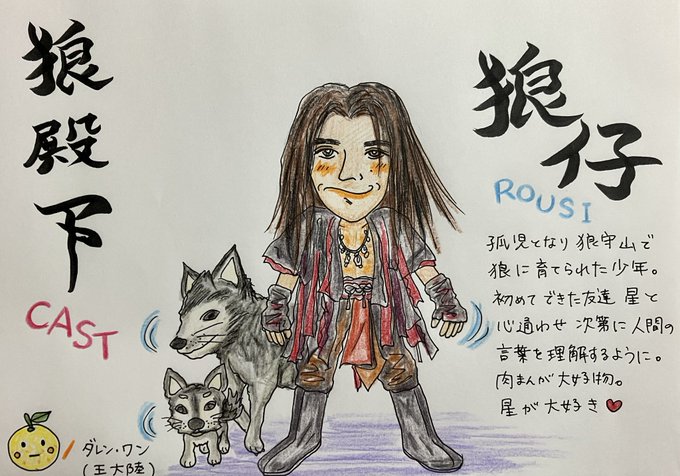 狼殿下
CAST
狼仔
ROUSI
孤児となり 狼守山で
狼に育てられた少年。
初めてできた友達 星と
心通わせ 次第に人間の
言葉を理解するように。
肉まんが大好物。
星が大好き♥
ダレン・ワン
(王大陸)